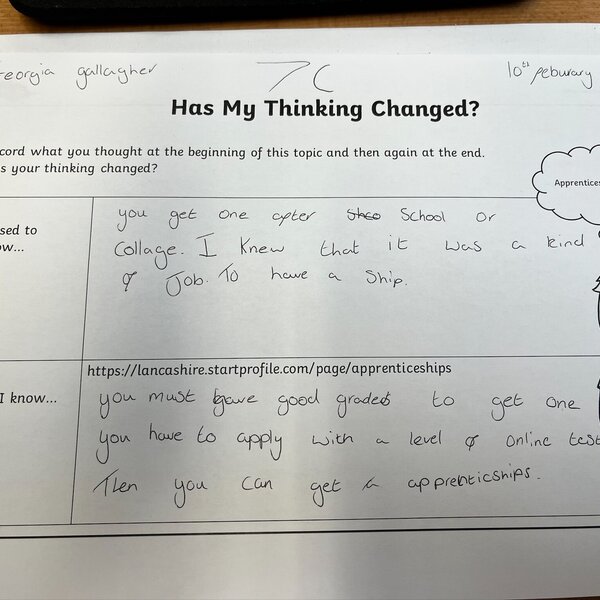 eorgia gallagher 7C 10th peburary
Has My Thinking Changed?
cord what you thought at the beginning of this topic and then again at the end.
s your thinking changed?
Apprentices
sed to
ow...
you get one after School or
Collage. I Knew that it was a kind
of Job. To have a Ship.
https://lancashire.startprofile.com/page/apprenticeships
I know...
you must have good grades to get one
you have to apply with a level of online test
Then you can get a apprenticships.